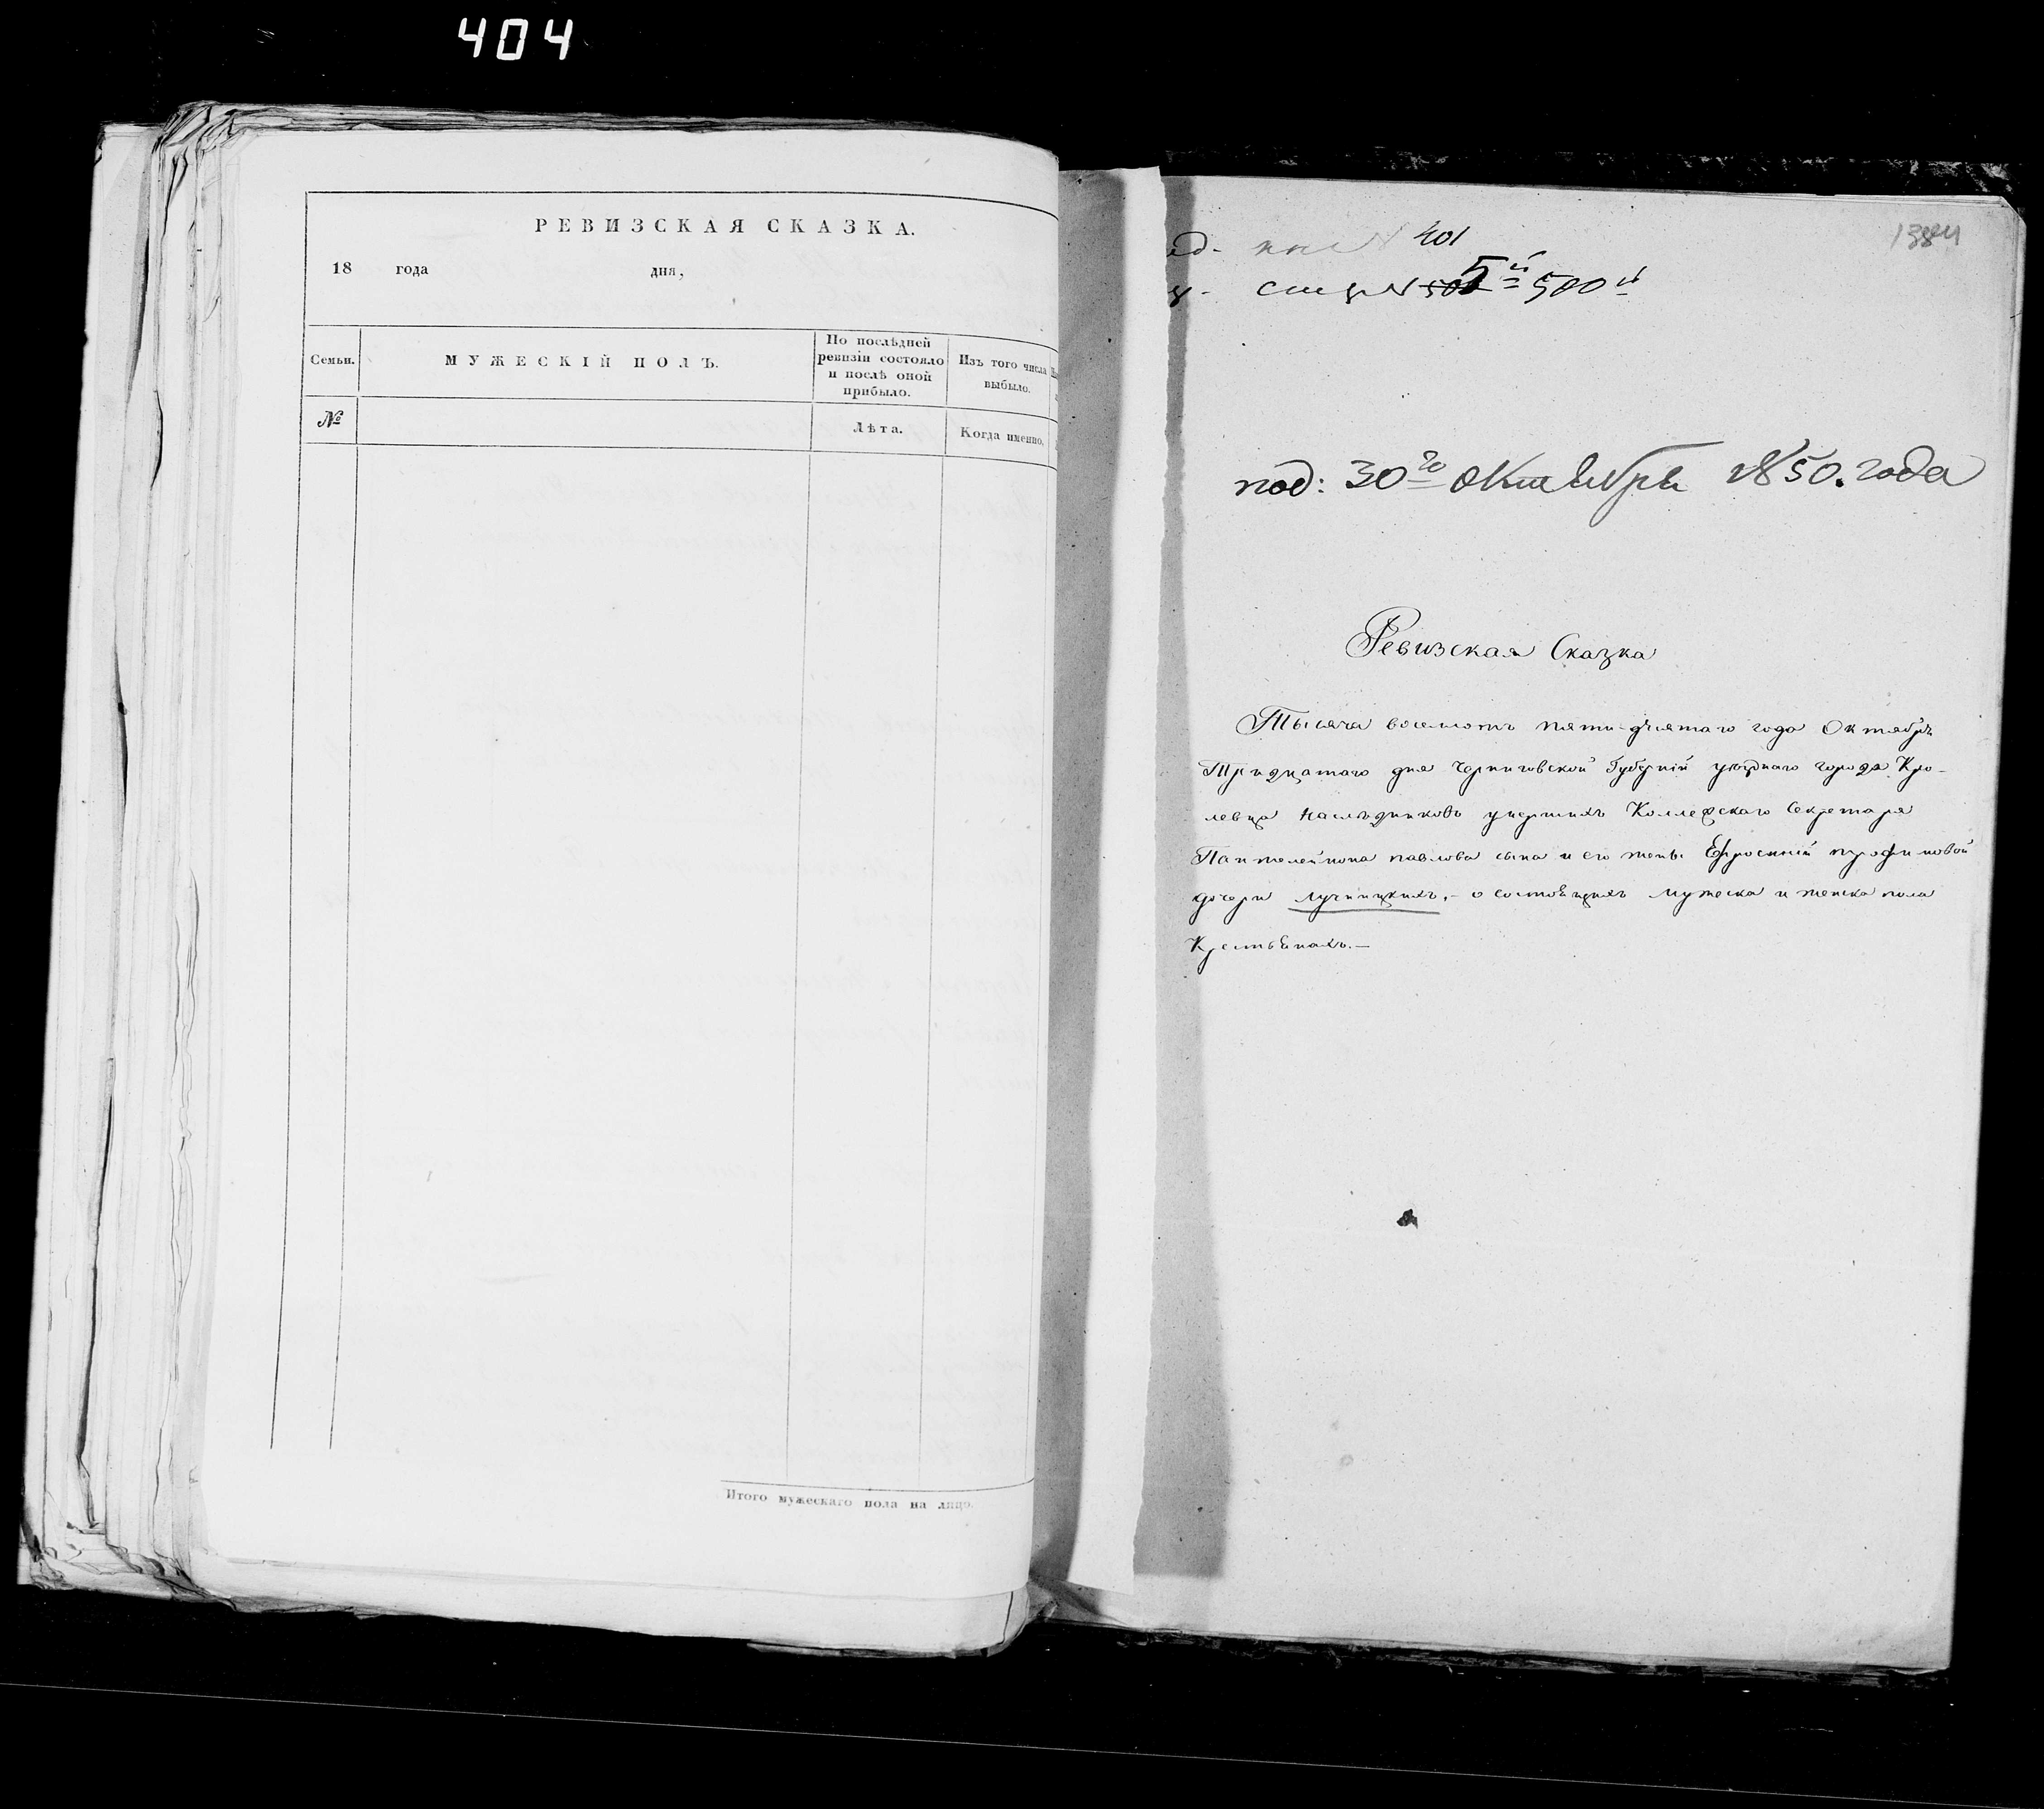 404
РЕВИЗСКАЯ СКАЗКА.
18 года дня,
Семьи.
МУЖЕСКІЙ ПОЛЪ.
По послѣдней
ревизіи состояло
и послѣ оной
прибыло.
Изъ того числа
выбыло.
№
Лѣта.
Когда именно.
Итого мужескаго пола на лицо.
401
500й
под: 30го Октября 1850. года
Ревизская Сказка
Тысяча восемсотъ пятидесятаго года Октября
Тридцатаго дня Черниговской Губерніи уѣзднаго города Кро-
левца Наслѣдниковъ умершихъ Коллежскаго Секретаря
Пантелеймона павлова сына и его жены Ефросиніи трофимовой
дочери Лучницкихъ,- о состоящихъ мужеска и женска пола
Крестьянахъ.—